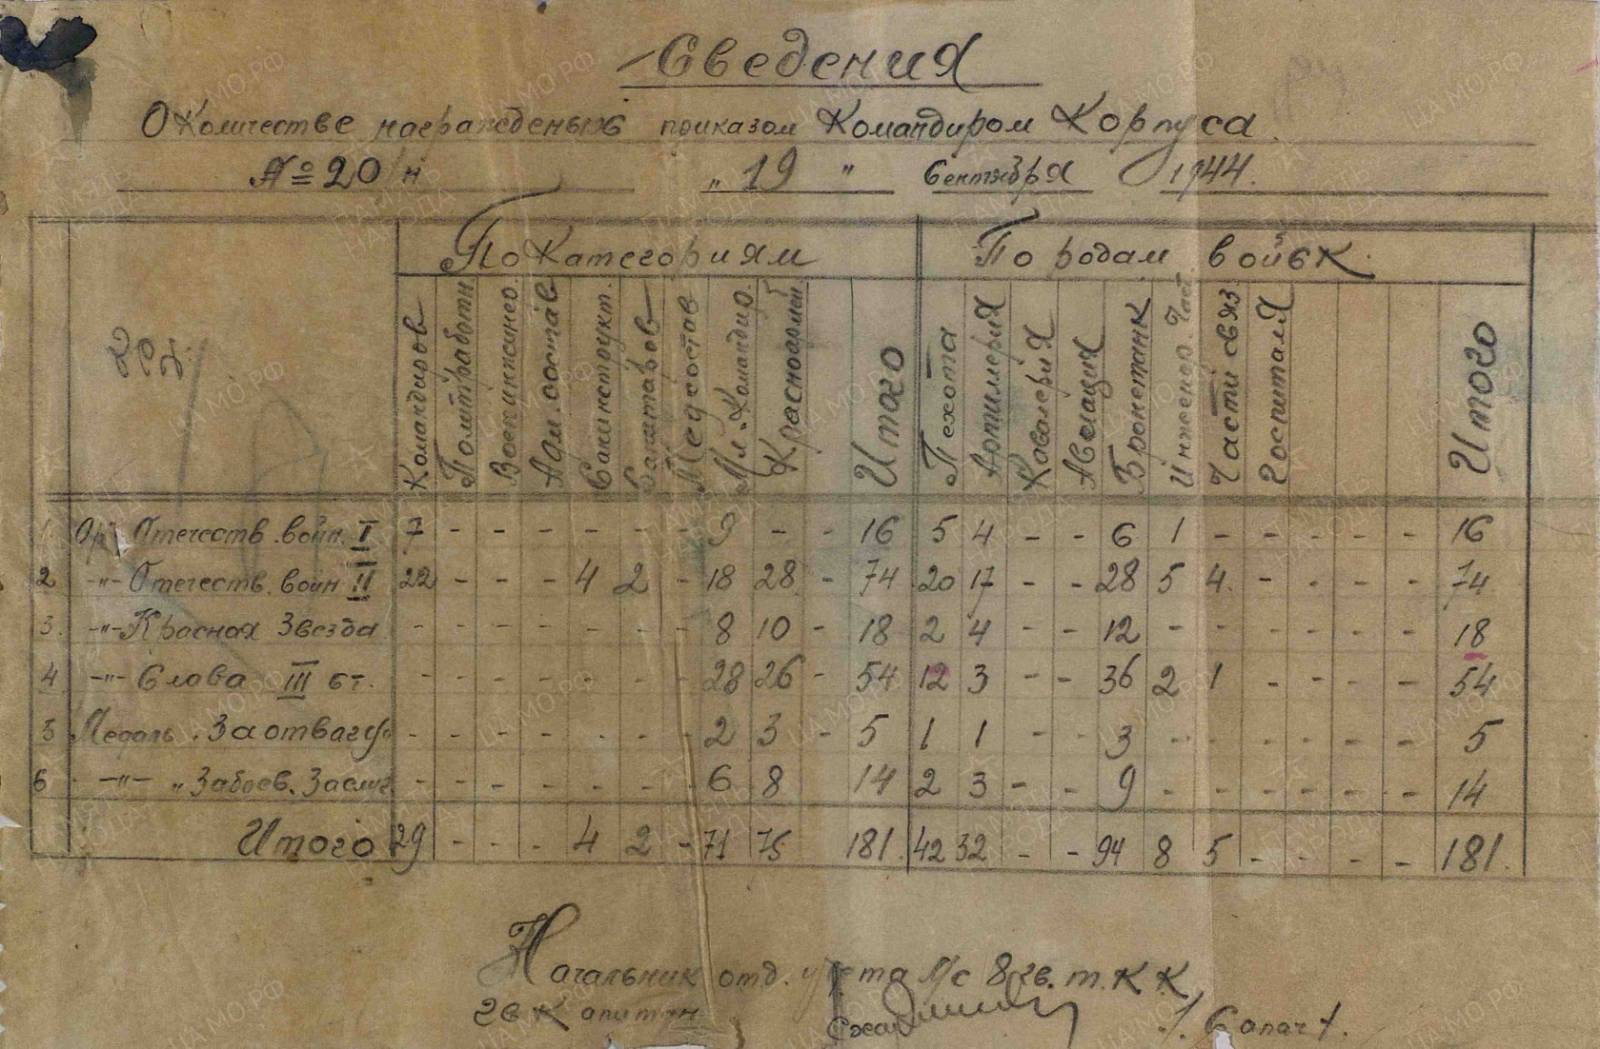 Сведения
О Количестве награжденных приказом Командиром Корпуса
№ 20/н "19" Сентября 1944.
По Категориям По родам войск
Командиров Политработн Военинженер. Адм. состав Ветсостав Мл. Командир. Красноармей. Итого Пехота Артилерия Кавалерия Авиация Бронетанк Инженер. Част Части связ Госпиталя Итого
1 Ор. Отечеств. войн. I 7 - - - - - - 9 - - 16 5 4 - - 6 1 - - - - - 16
2 -"- Отечеств. войн II 22 - - - 4 2 - 18 28 - 74 20 17 - - 28 5 4 - - - - 74
3. -"- Красная Звезда - - - - - - - 8 10 - 18 2 4 - - 12 - - - - - - 18
4 -"- Слава III ст. - - - - - - - 28 26 - 54 12 3 - - 36 2 1 - - - - 54
5 Медаль . За отвагу" - - - - - - - 2 3 - 5 1 1 - - 3 - - - - - - 5
6 -"- "За боев. Заслуг. - - - - - - - 6 8 14 2 3 - - 9 - - - - - - 14
Итого 29 - - - 4 2 - 71 75 181. 42 32 - - 94 8 5 - - - - 181.
Начальник отд. М/с 8 гв. т. К К
гв Капитан